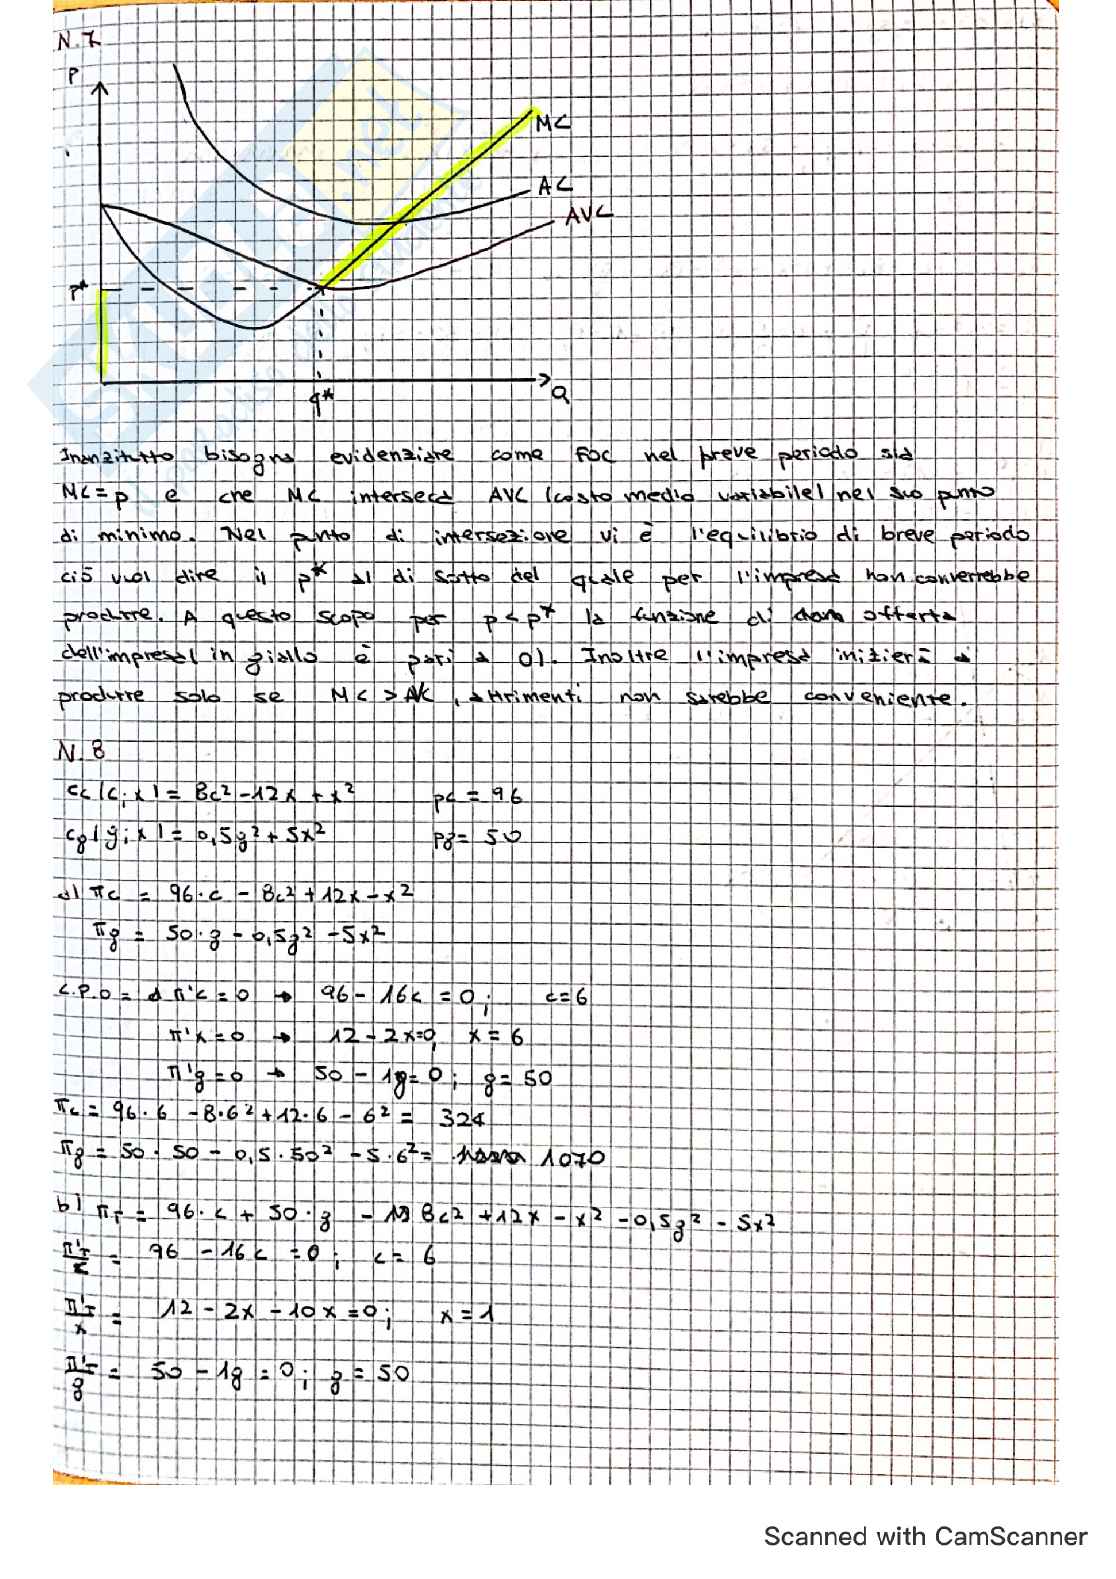 N.7
P
MC
AC
AVC
p*
q*
Q
Inanzitutto bisogna evidenziare come FOC nel breve periodo sia
MC=p e che MC interseca AVC (costo medio variabile) nel suo punto
di minimo. Nel punto di intersezione vi è l'equilibrio di breve periodo
ciò vuol dire il p* al di sotto del quale per l'impresa non converrebbe
produrre. A questo scopo per p<p* la funzione di offerta
dell'impresa (in giallo è pari a 0). Inoltre l'impresa inizierà a
produrre solo se MC > AVC, altrimenti non sarebbe conveniente.
N.8
Cc(c;x) = 8c²-12x+x² pc = 96
Cg(g;x) = 0,5g²+5x² pg = 50
a) πc = 96·c - 8c²+12x-x²
πg = 50·g - 0,5g² -5x²
C.P.O = d π'c=0 → 96-16c=0; c=6
π'x=0 → 12-2x=0, x=6
π'g=0 → 50-1g=0; g=50
πc = 96·6 -8·6²+12·6-6² = 324
πg = 50·50-0,5·50²-5·6² = 1070
b) πT = 96·c+50·g - 8c²+12x-x²-0,5g²-5x²
π'T/c = 96-16c=0; c=6
π'T/x = 12-2x-10x=0; x=1
π'T/g = 50-1g=0; g=50
Scanned with CamScanner